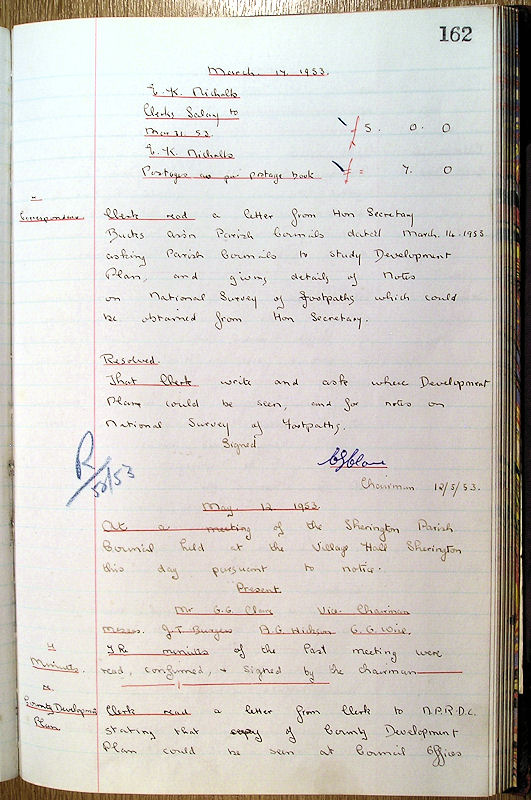 162
March. 17. 1953.
E. K. Nicholls
Clerks Salary to
Mar 31. 53.
£ 5. 0. 0
E. K. Nicholls
Postages as per postage book
£ = 7. 0
Correspondence
Clerk read a letter from Hon Secretary
Bucks assn Parish Councils dated March. 14. 1953
asking Parish Councils to study Development
Plan, and giving details of Notes
on National Survey of Footpaths which could
be obtained from Hon Secretary.
Resolved.
That Clerk write and ask where Development
Plans could be seen, and for notes on
National Survey of Footpaths.
Signed
Chairman 12/5/53.
R/53
May. 12. 1953
At a meeting of the Sherington Parish
Council held at the Village Hall Sherington
this day pursuant to notice.
Present
Mr G.G. Clare Vice. Chairman
Messrs. J.T. Burgess A.G. Hickson G.G. Wise.
Minutes.
The minutes of the Past meeting were
read, confirmed, & signed by the chairman
County Development
Plan
Clerk read a letter from Clerk to N.P.R.D.C.
stating that copy of County Development
Plan could be seen at Council Offices